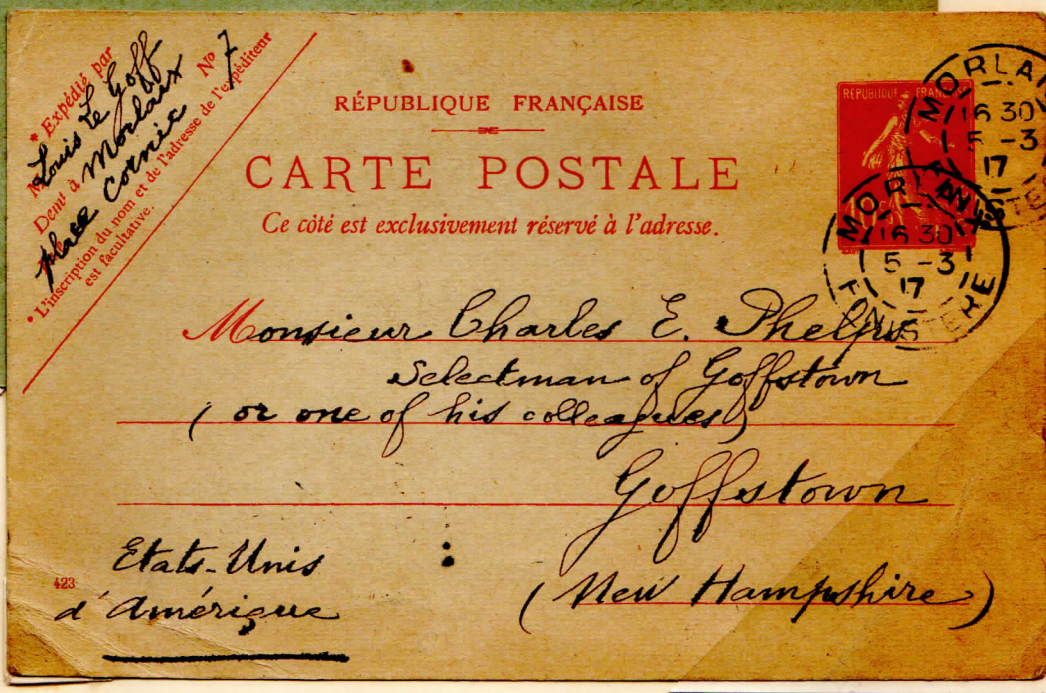 * Expédié par
M Louis Le Goff
Demt à Morlaix
place Cornic Nº 7
* L'inscription du nom et de l'adresse de l'expéditeur
est facultative.
RÉPUBLIQUE FRANÇAISE
CARTE POSTALE
Ce côté est exclusivement réservé à l'adresse.
REPUBLIQUE FRANÇAISE
10
MORLAIX
16 30
5 - 3
17
FINISTERE
MORLAIX
16 30
5 - 3
17
FINISTERE
Monsieur Charles E. Phelps
Selectman of Goffstown
(or one of his colleagues)
Goffstown
(New Hampshire)
Etats-Unis
d'Amérique
423